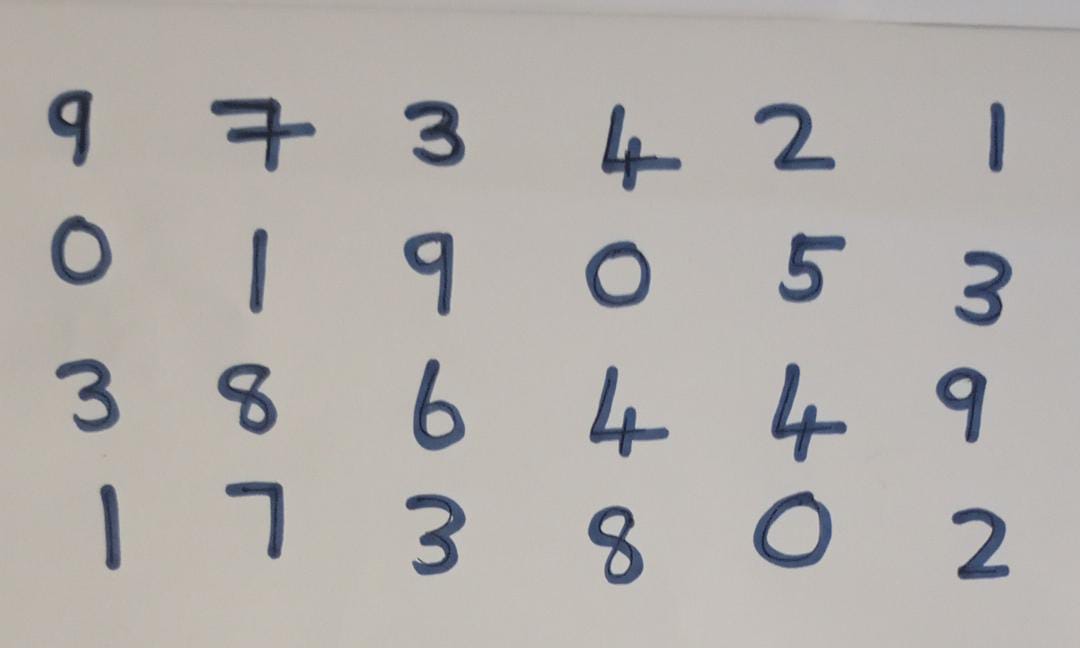 9 7 3 4 2 1
0 1 9 0 5 3
3 8 6 4 4 9
1 7 3 8 0 2